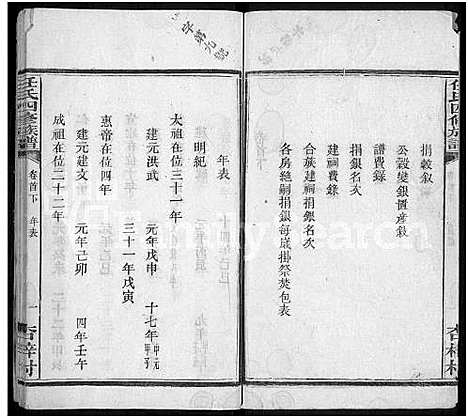 任氏四修族譜
捐穀叙
公穀變銀置產叙
譜費錄
建祠費錄
合族建祠捐銀名次
捐銀名次
各房絶嗣捐銀每歲掛祭焚包表
杏梓村
字第九號
年表
明紀
太祖在位三十一年
建元洪武 元年戊申 十七年中元甲子
三十一年戊寅
惠帝在位四年
建元建文 元年己卯 四年壬午
成祖在位二十二年
任氏四修族譜
卷首下 年表 一
杏梓村